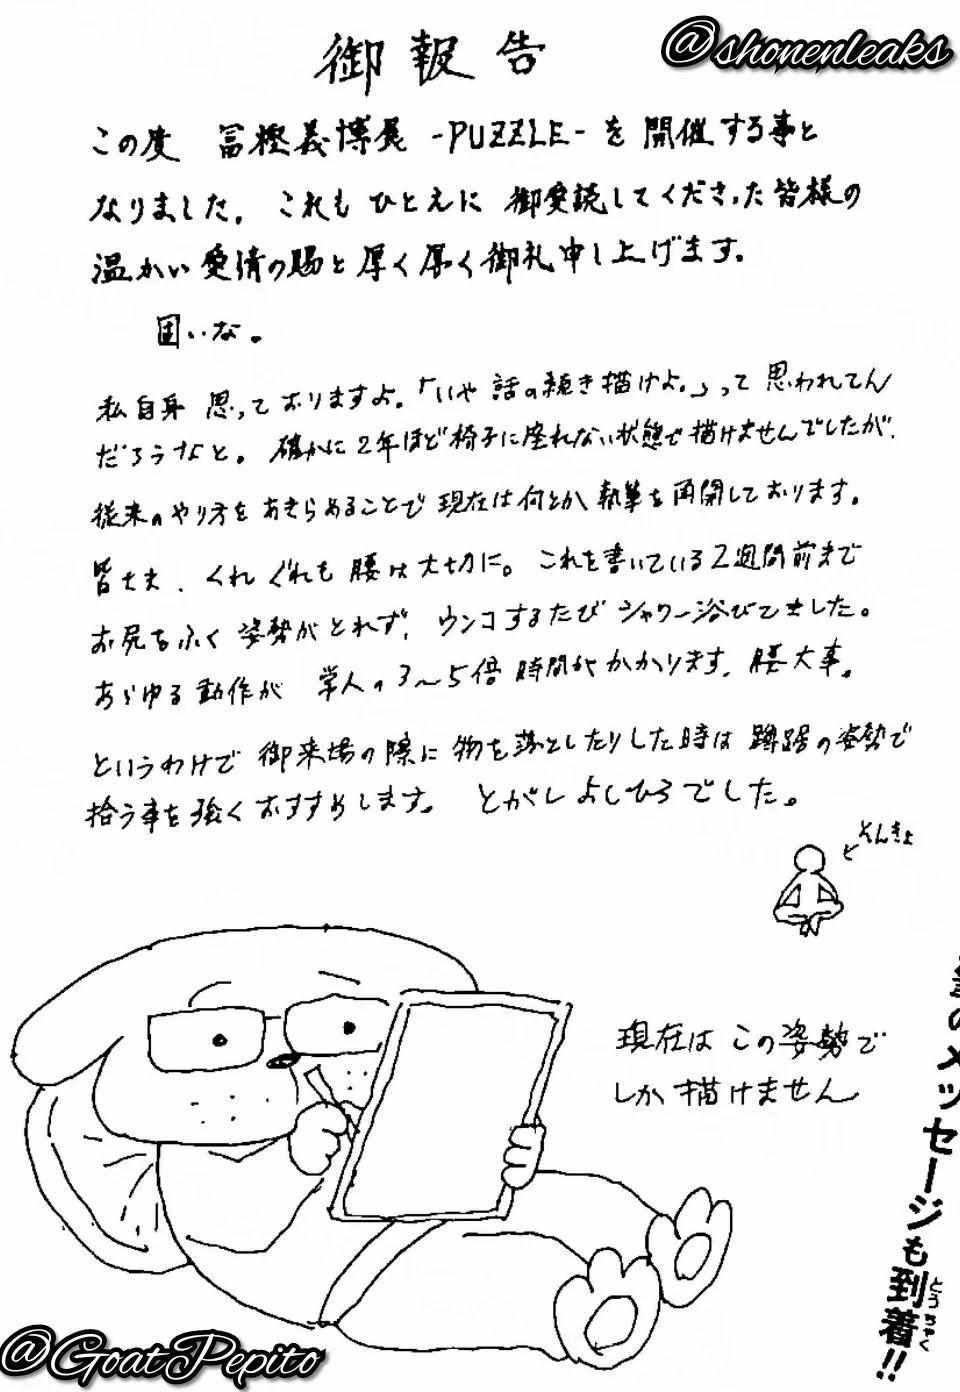 @shonenleaks
御報告
この度 冨樫義博展 -PUZZLE- を開催する事と
なりました。これもひとえに 御愛読してくださった皆様の
温かい愛情の賜と厚く厚く御礼申し上げます。
固いな。
私自身 思っておりますよ。「いや 話の続き描けよ。」って 思われてん
だろうなと。確かに2年ほど椅子に座れない状態で描けませんでしたが、
従来のやり方をあきらめることで現在は何とか執筆を再開しております。
皆さま、くれぐれも腰は大切に。これを書いている2週間前まで
お尻をふく姿勢がとれず、ウンコするたびシャワー浴びてました。
あらゆる動作が 常人の3〜5倍時間がかかります。腰大事。
というわけで 御来場の際に物を落としたりした時は 蹲踞の姿勢で
拾う事を強くおすすめします。とがしよしひろでした。
そんきょ
現在は この姿勢で
しか描けません
のメッセージも到着!!
とうちゃく
@GoatPepito